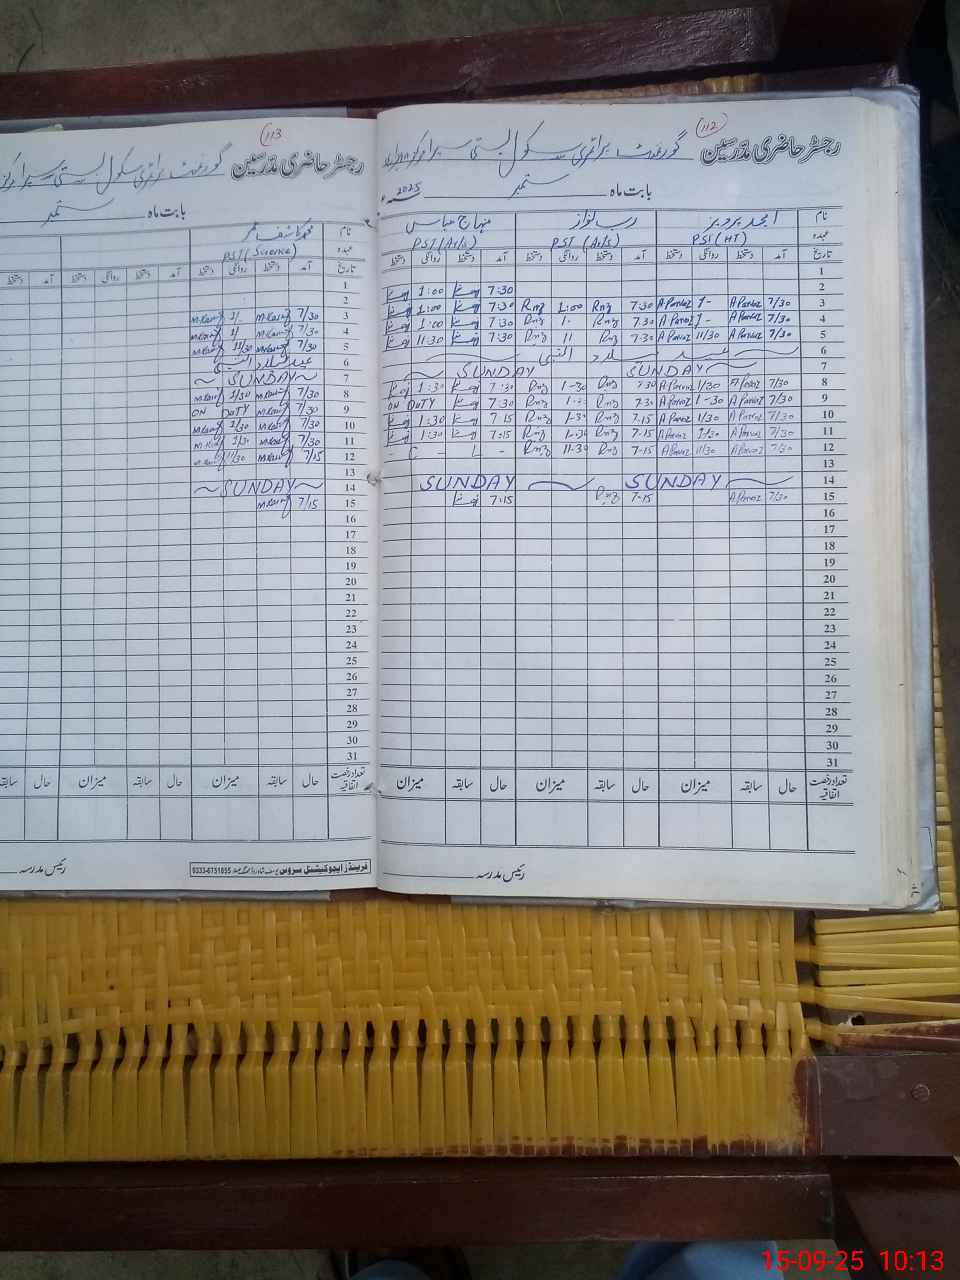 112
رجسٹر حاضری مدرسین گورنمنٹ پرائمری سکول بستی
بابت ماہ ستمبر 2025
نام امجد پرویز رب نواز منہاج عباس
عہدہ PST (HT) PST (Ar/s) PST (Ar/s)
تاریخ آمد دستخط روانگی دستخط آمد دستخط روانگی دستخط آمد دستخط روانگی دستخط
1
2 7:30 1:00
3 7/30 A Parvaz 1- A Parvaz 7:30 Rnz 1:00 Rnz 7:30 1:00
4 7/30 A Parvaz 1- A Parvaz 7:30 Rnz 1- Rnz 7:30 1:00
5 7/30 A Parvaz 11/30 A Parvaz 7:30 Rnz 11 Rnz 7:30 11:30
6 عید میلاد النبی
7 SUNDAY SUNDAY
8 7/30 A Parvaz 1/30 A Parvaz 7:30 Rnz 1-30 Rnz 7:30 1:30
9 7/30 A Parvaz 1-30 A Parvaz 7:30 Rnz Rnz 7:30 ON DUTY
10 7/30 A Parvaz 1/30 A Parvaz 7-15 Rnz 1-30 Rnz 7:15 1:30
11 7/30 A Parvaz 1/30 A Parvaz 7-15 Rnz 1-30 Rnz 7:15 1:30
12 7/30 A Parvaz 11/30 A Parvaz 7-15 Rnz 11-30 Rnz - L - C -
13
14 SUNDAY SUNDAY
15 7/30 A Parvaz 7-15 Rnz 7:15
16
17
18
19
20
21
22
23
24
25
26
27
28
29
30
31
تعداد رخصت اتفاقیہ حال سابقہ میزان حال سابقہ میزان حال سابقہ میزان
رئیس مدرسہ
113
رجسٹر حاضری مدرسین گورنمنٹ پرائمری سکول بستی
بابت ماہ ستمبر
نام محمد کاشف عمر
عہدہ PST (Science)
تاریخ آمد دستخط روانگی دستخط آمد دستخط روانگی دستخط آمد دستخط
1
2
3 7/30 M.Kashif 1/- M.Kashif
4 7/30 M.Kashif 1/ M.Kashif
5 7/30 M.Kashif 11/30 M.Kashif
6 عید میلاد النبی
7 SUNDAY
8 7/30 M.Kashif 1/30 M.Kashif
9 7/30 M.Kashif ON DUTY
10 7/30 M.Kashif 1/30 M.Kashif
11 7/30 M.Kashif 1/30 M.Kashif
12 7/15 M.Kashif 11/30 M.Kashif
13
14 SUNDAY
15 7/15 M.Kashif
16
17
18
19
20
21
22
23
24
25
26
27
28
29
30
31
تعداد رخصت اتفاقیہ حال سابقہ میزان حال سابقہ میزان حال سابقہ
فرینڈز ایجوکیشنل سروس 0333-6751855
رئیس مدرسہ
15-09-25 10:13